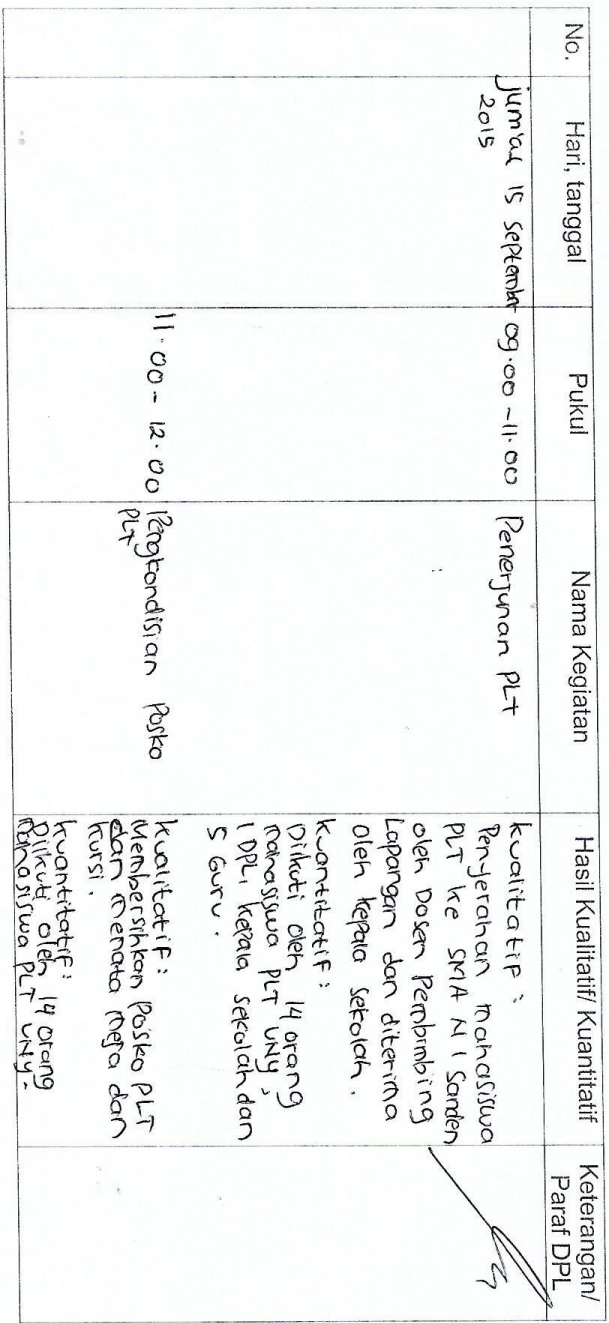 No.
Hari, tanggal
Pukul
Nama Kegiatan
Hasil Kualitatif/ Kuantitatif
Keterangan/
Paraf DPL
Jum'at 15 September
2015
09.00 - 11.00
Penerjunan PLT
Kualitatif :
Penyerahan mahasiswa
PLT ke SMA N 1 Sanden
oleh Dosen Pembimbing
Lapangan dan diterima
oleh kepala sekolah.
Kuantitatif :
Diikuti oleh 14 orang
mahasiswa PLT UNY,
1 DPL, kepala sekolah dan
5 Guru.
11.00 - 12.00
Pengkondisian Posko
PLT
Kualitatif :
Membersihkan Posko PLT
dan menata meja dan
kursi.
Kuantitatif :
Diikuti oleh 14 orang
mahasiswa PLT UNY.